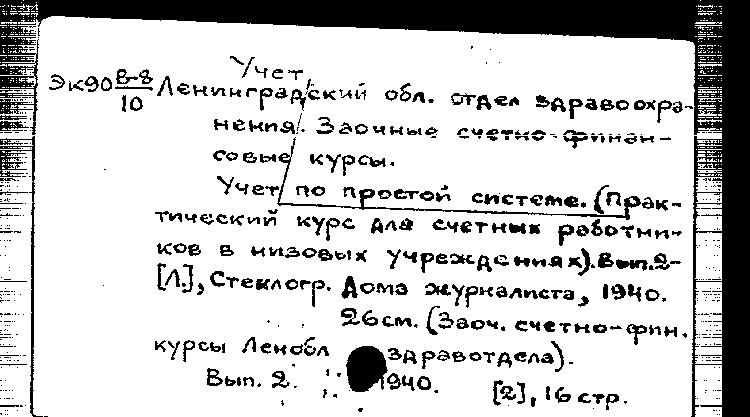 Учет,
Эк90 В-8/10 Ленинградский обл. отдел здравоохра-
нения. Заочные счетно-финан-
совые курсы.
Учет по простой системе. (Прак-
тический курс для счетных работни-
ков в низовых учреждениях). Вып. 2-
[Л.], Стеклогр. Дома журналиста, 1940.
26 см. (Заоч. счетно-фин.
курсы Ленобл здравотдела).
Вып. 2. 1940. [2], 16 стр.